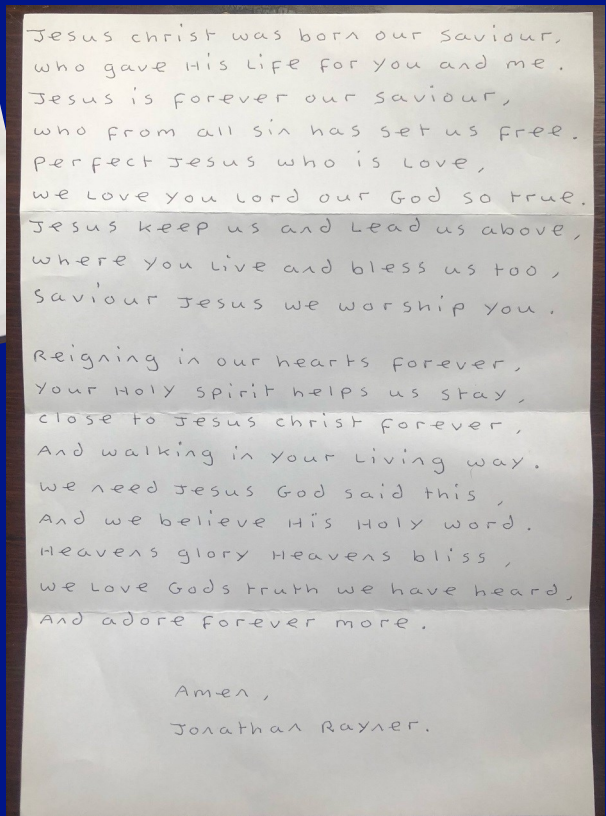 Jesus christ was born our saviour,
who gave His Life for you and me.
Jesus is forever our saviour,
who from all sin has set us free.
perfect Jesus who is Love,
we Love you Lord our God so true.
Jesus keep us and Lead us above,
where you Live and bless us too,
saviour Jesus we worship you.
Reigning in our hearts forever,
your Holy spirit helps us stay,
close to Jesus christ forever,
And walking in your Living way.
we need Jesus God said this,
And we believe His Holy word.
Heavens glory Heavens bliss,
we Love Gods truth we have heard,
And adore forever more.
Amen,
Jonathan Rayner.